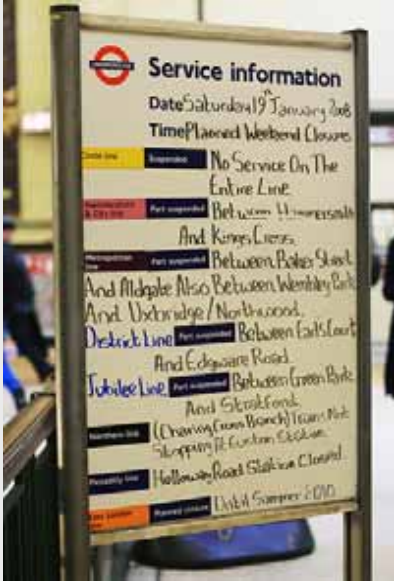 UNDERGROUND
Service information
Date Saturday 19th January 2008
Time Planned Weekend Closures
Circle line Suspended No Service On The
Entire Line
Hammersmith & City line Part suspended Between Hammersmith
And Kings Cross.
Metropolitan line Part suspended Between Baker Street
And Aldgate Also Between Wembley Park
And Uxbridge/Northwood.
District Line Part suspended Between Earls Court
And Edgware Road.
Jubilee Line Part suspended Between Green Park
And Stratford.
Northern line (Charing Cross Branch) Trains Not
Stopping At Euston Station.
Piccadilly line Holloway Road Station Closed.
East London line Planned closure Until Summer 2010